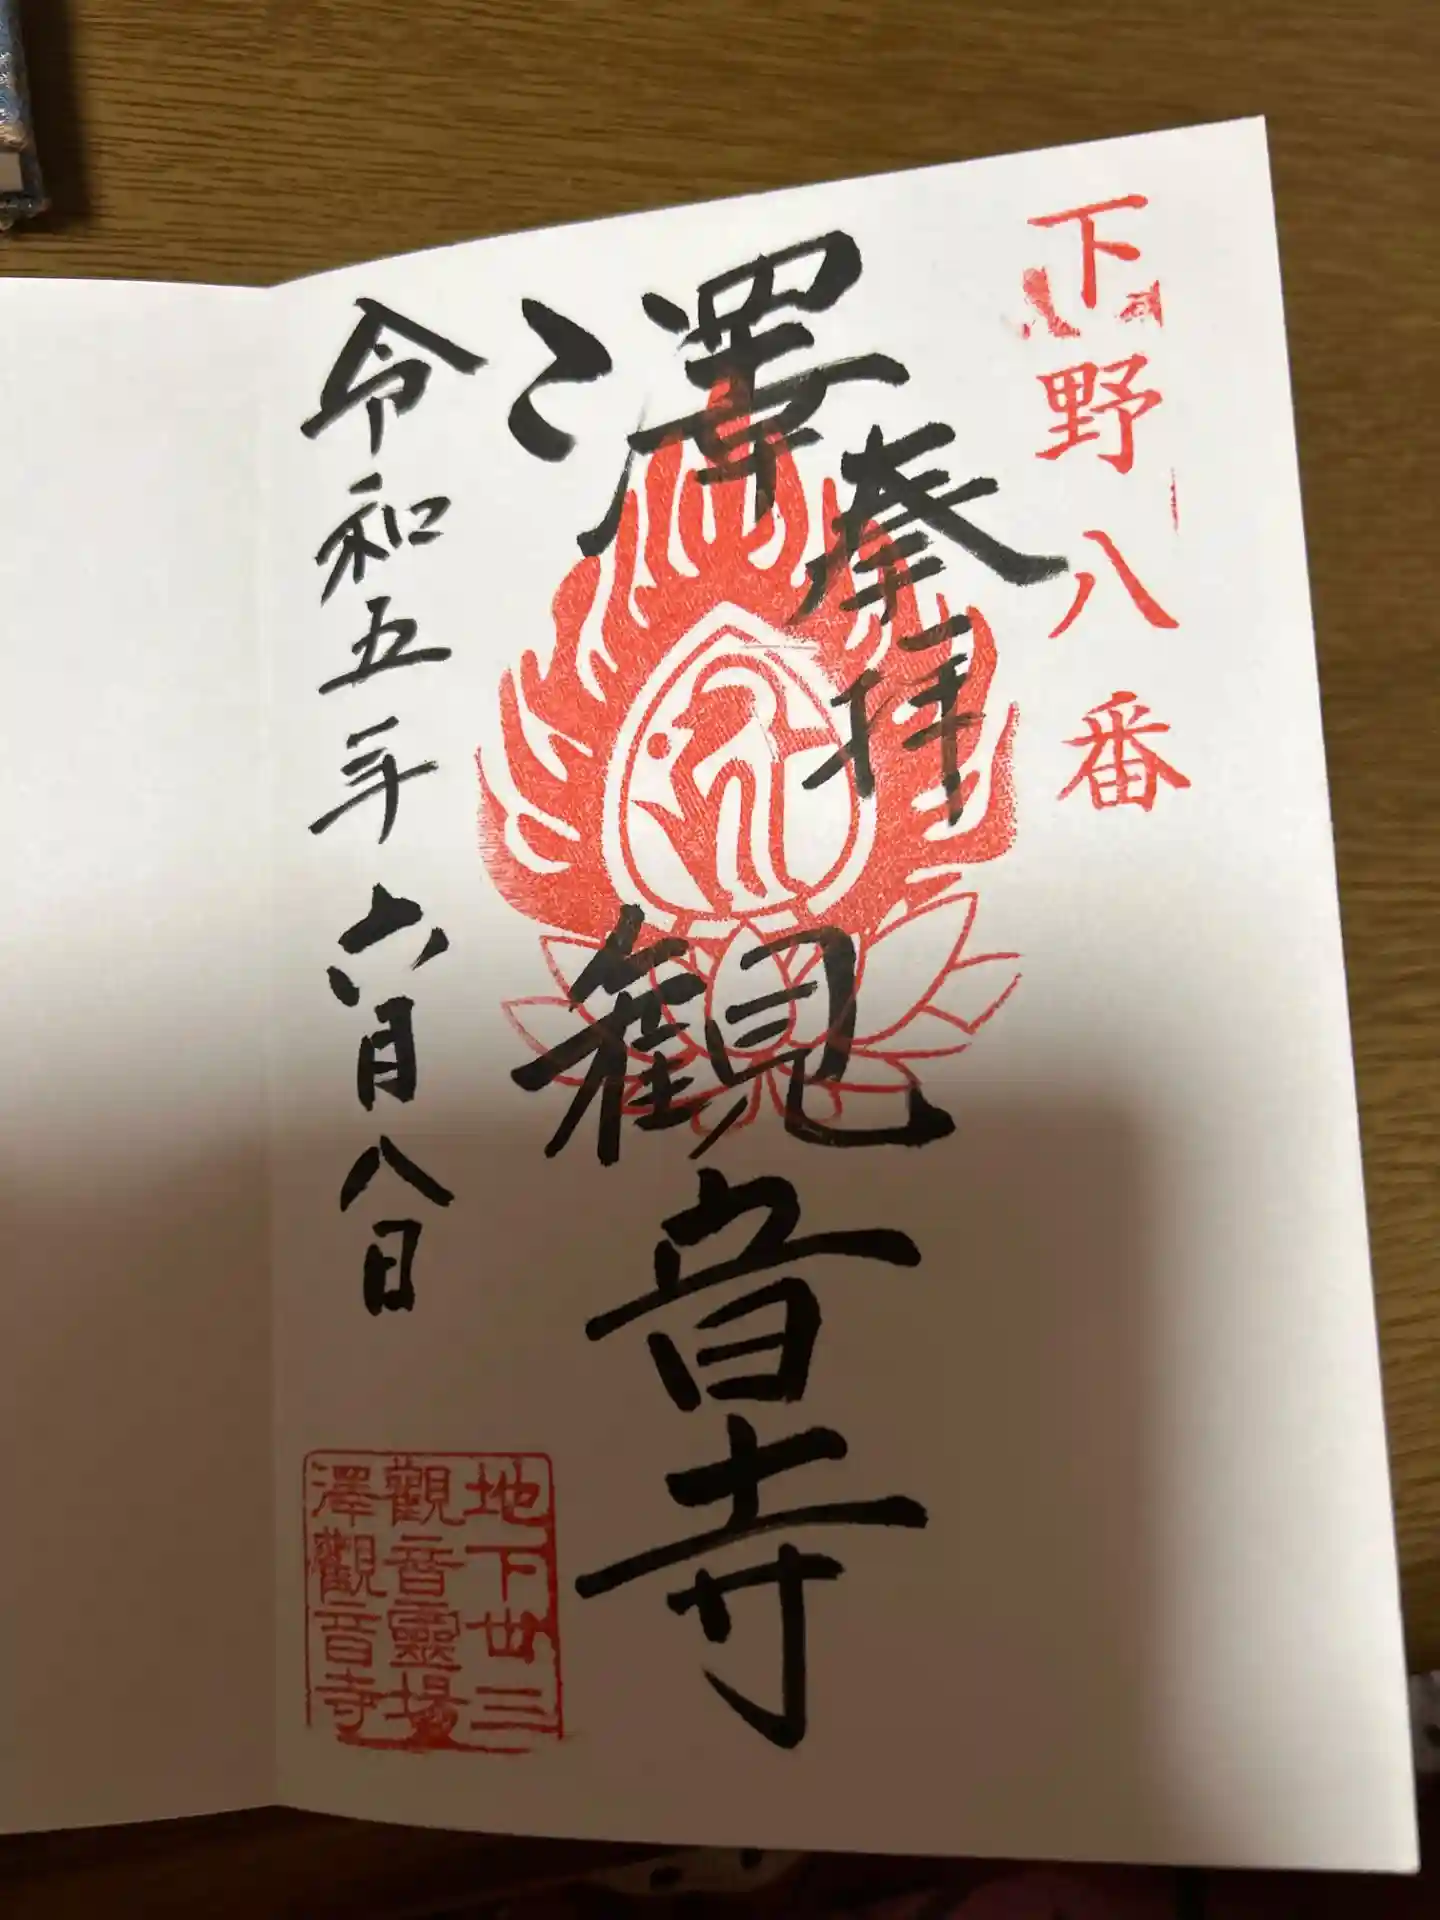 下野八番
奉拝
澤観音寺
令和五年六月八日
地下丗三
觀音靈場
澤觀音寺